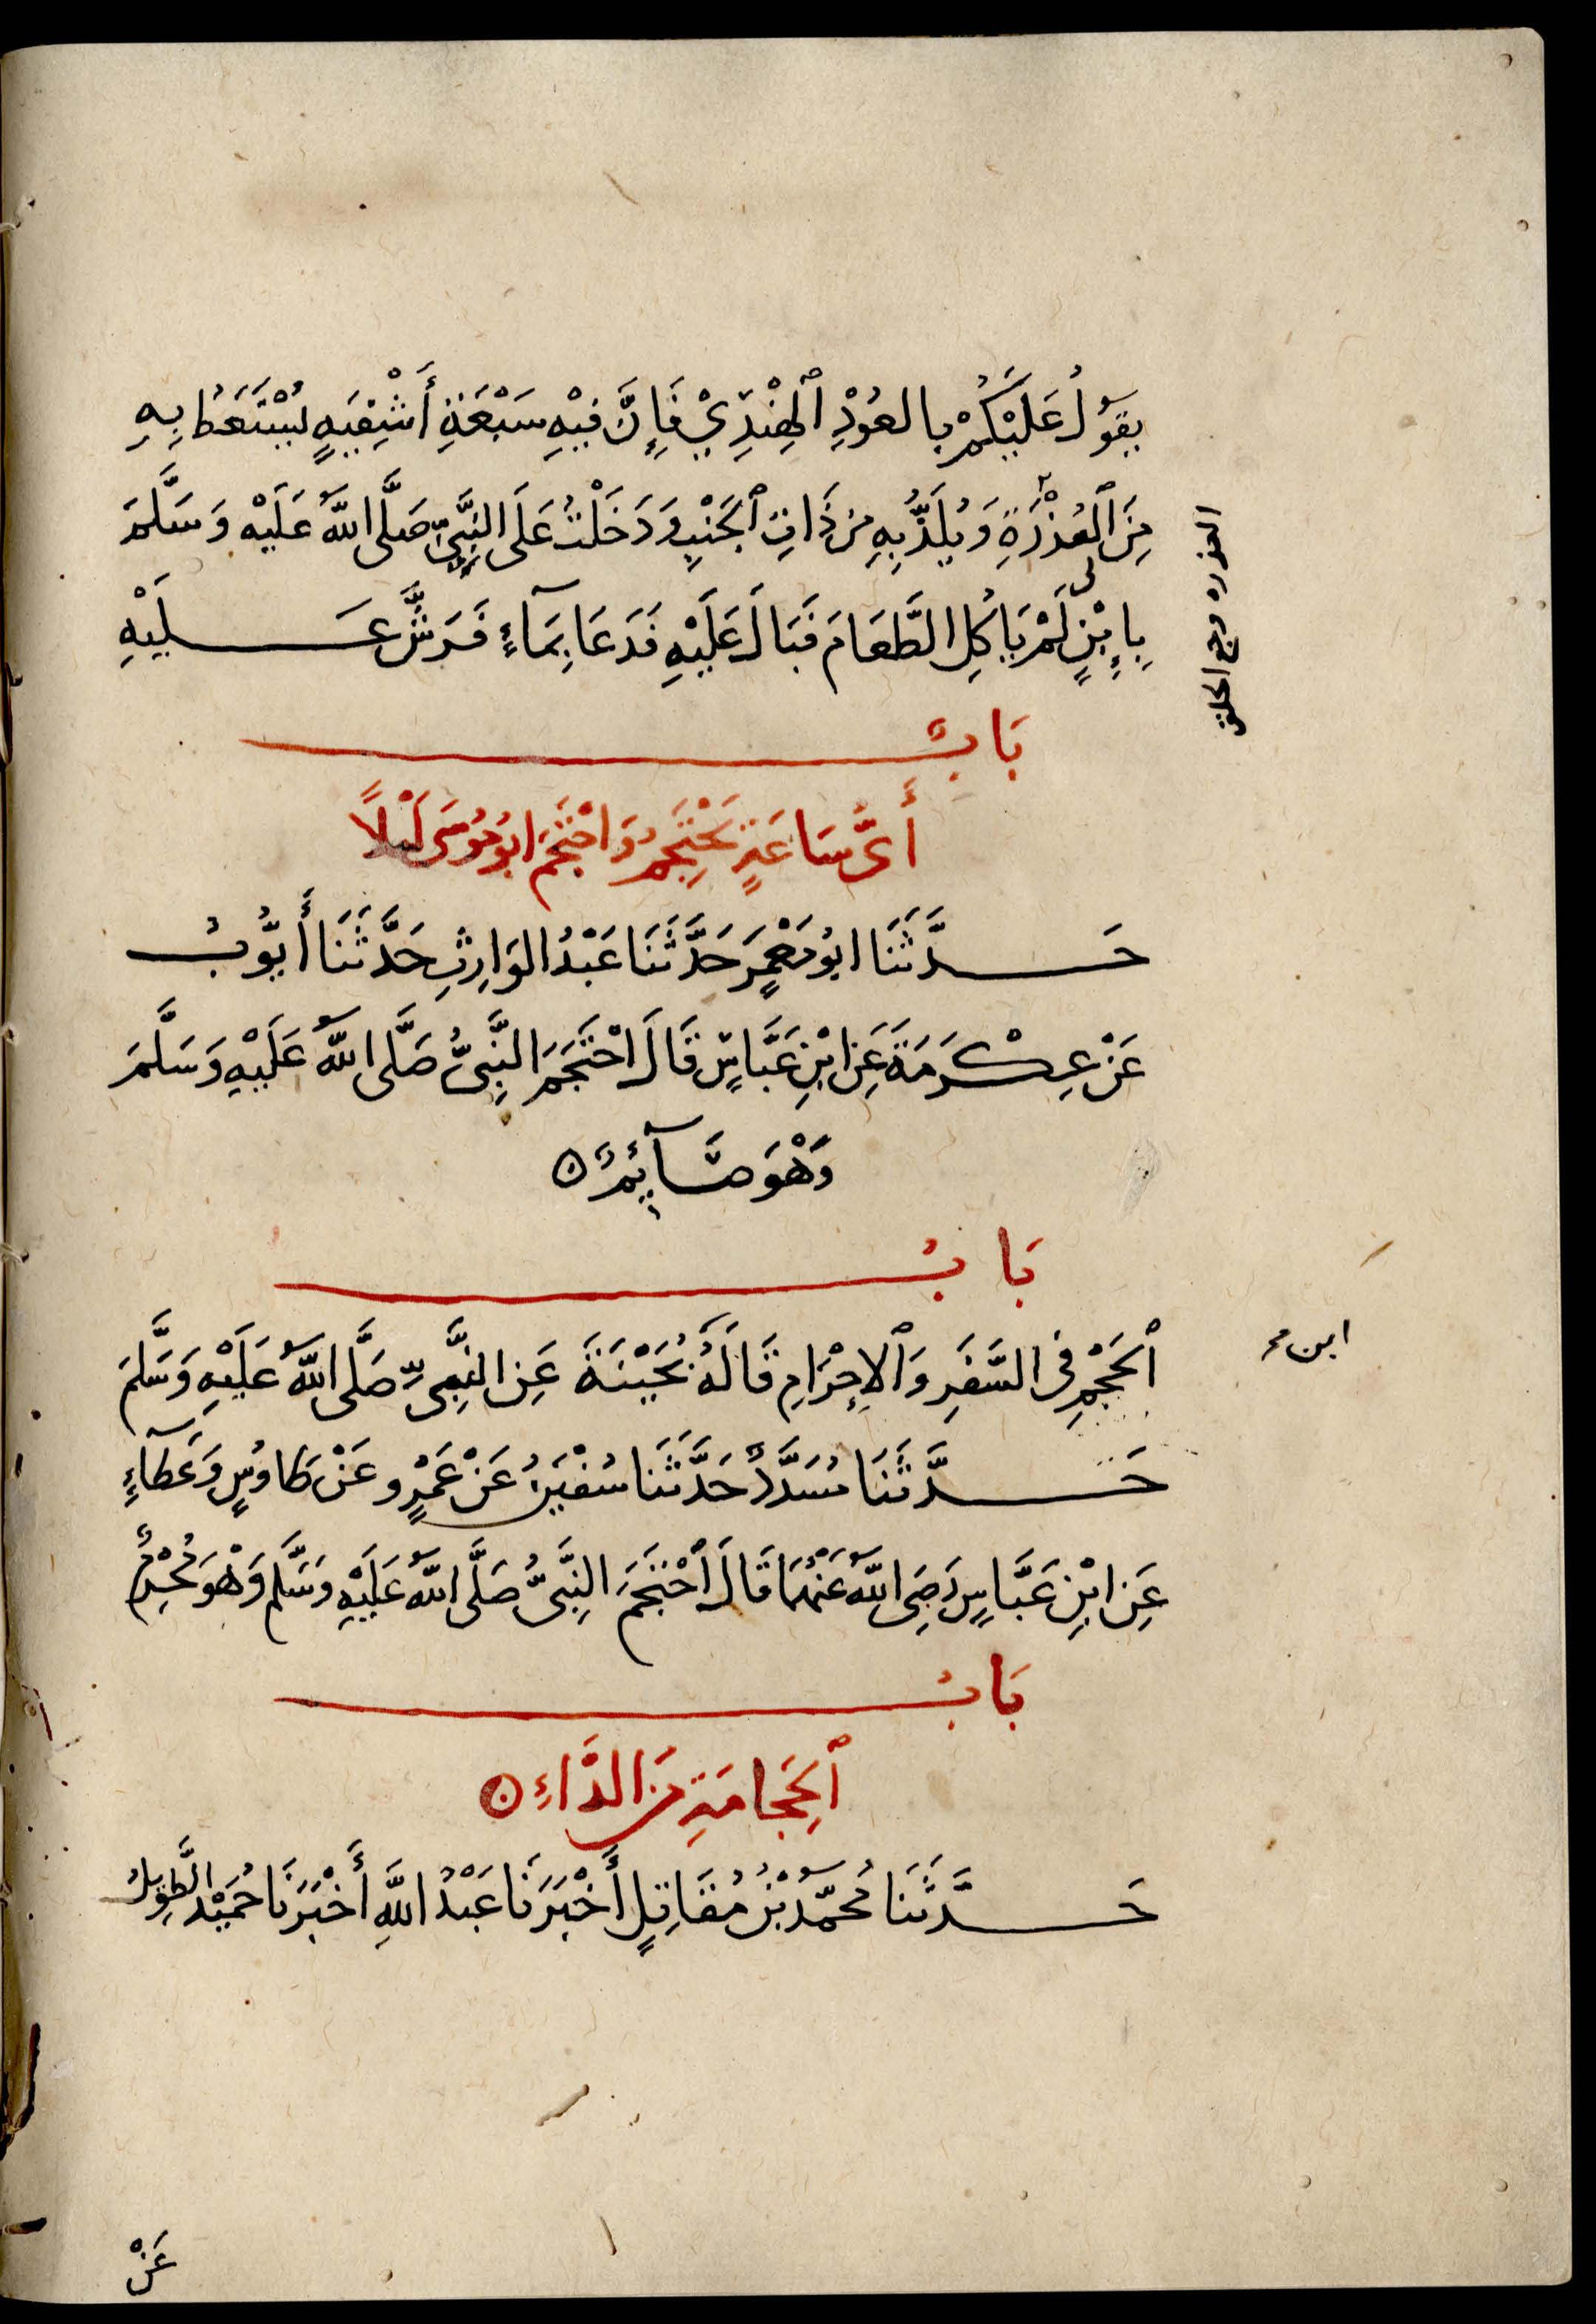 يَقُوْلُ عَلَيْكُمْ بِالعُوْدِ ٱلْهِنْدِيِّ فَإِنَّ فِيْهِ سَبْعَةَ أَشْفِيَةٍ يُسْتَعَطُ بِهِ
مِنَ ٱلْعُذْرَةِ وَيُلَدُّ بِهِ مِنْ ذَاتِ ٱلْجَنْبِ وَدَخَلْتُ عَلَى النَّبِيِّ صَلَّى اللّٰهُ عَلَيْهِ وَسَلَّمَ
العذره وجع الحلق
بِإِبْنٍ لِى لَمْ يَاكُلِ الطَّعَامَ فَبَالَ عَلَيْهِ فَدَعَا بِمَآءٍ فَرَشَّ عَلَيْهِ
بَابٌ
أَىَّ سَاعَةٍ يَحْتَجِمُ وَاحْتَجَمَ ابُو مُوْسَى لَيْلاً
حَدَّثَنَا ابُو مَعْمَرٍ حَدَّثَنَا عَبْدُ الوَارِثِ حَدَّثَنَا أَيُّوْبُ
عَنْ عِكْرَمَةَ عَنِ ابْنِ عَبَّاسٍ قَالَ احْتَجَمَ النَّبِىُّ صَلَّى اللّٰهُ عَلَيْهِ وَسَلَّمَ
وَهْوَ صَآئِمٌ ۝
بَابُ
ٱلْحَجْمِ فِى السَّفَرِ وَٱلْاِحْرَامِ قَالَهُ بُحَيْنَةَ عَنِ النَّبِىِّ صَلَّى اللّٰهُ عَلَيْهِ وَسَلَّمَ
ابن صح
حَدَّثَنَا مُسَدَّدٌ حَدَّثَنَا سُفْيٰنُ عَنْ عَمْرٍو عَنْ طَاوُسٍ وَعَطَآءٍ
عَنِ ابْنِ عَبَّاسٍ رَضِىَ اللّٰهُ عَنْهُمَا قَالَ ٱحْتَجَمَ النَّبِىُّ صَلَّى اللّٰهُ عَلَيْهِ وَسَلَّمَ وَهْوَ مُحْرِمٌ
بَابُ
ٱلْحِجَامَةِ مِنَ الدَّاءِ ۝
حَدَّثَنَا مُحَمَّدُ بْنُ مُقَاتِلٍ أَخْبَرَنَا عَبْدُ اللّٰهِ أَخْبَرَنَا حُمَيْدٌ الطَّوِيْلُ
عَنْ